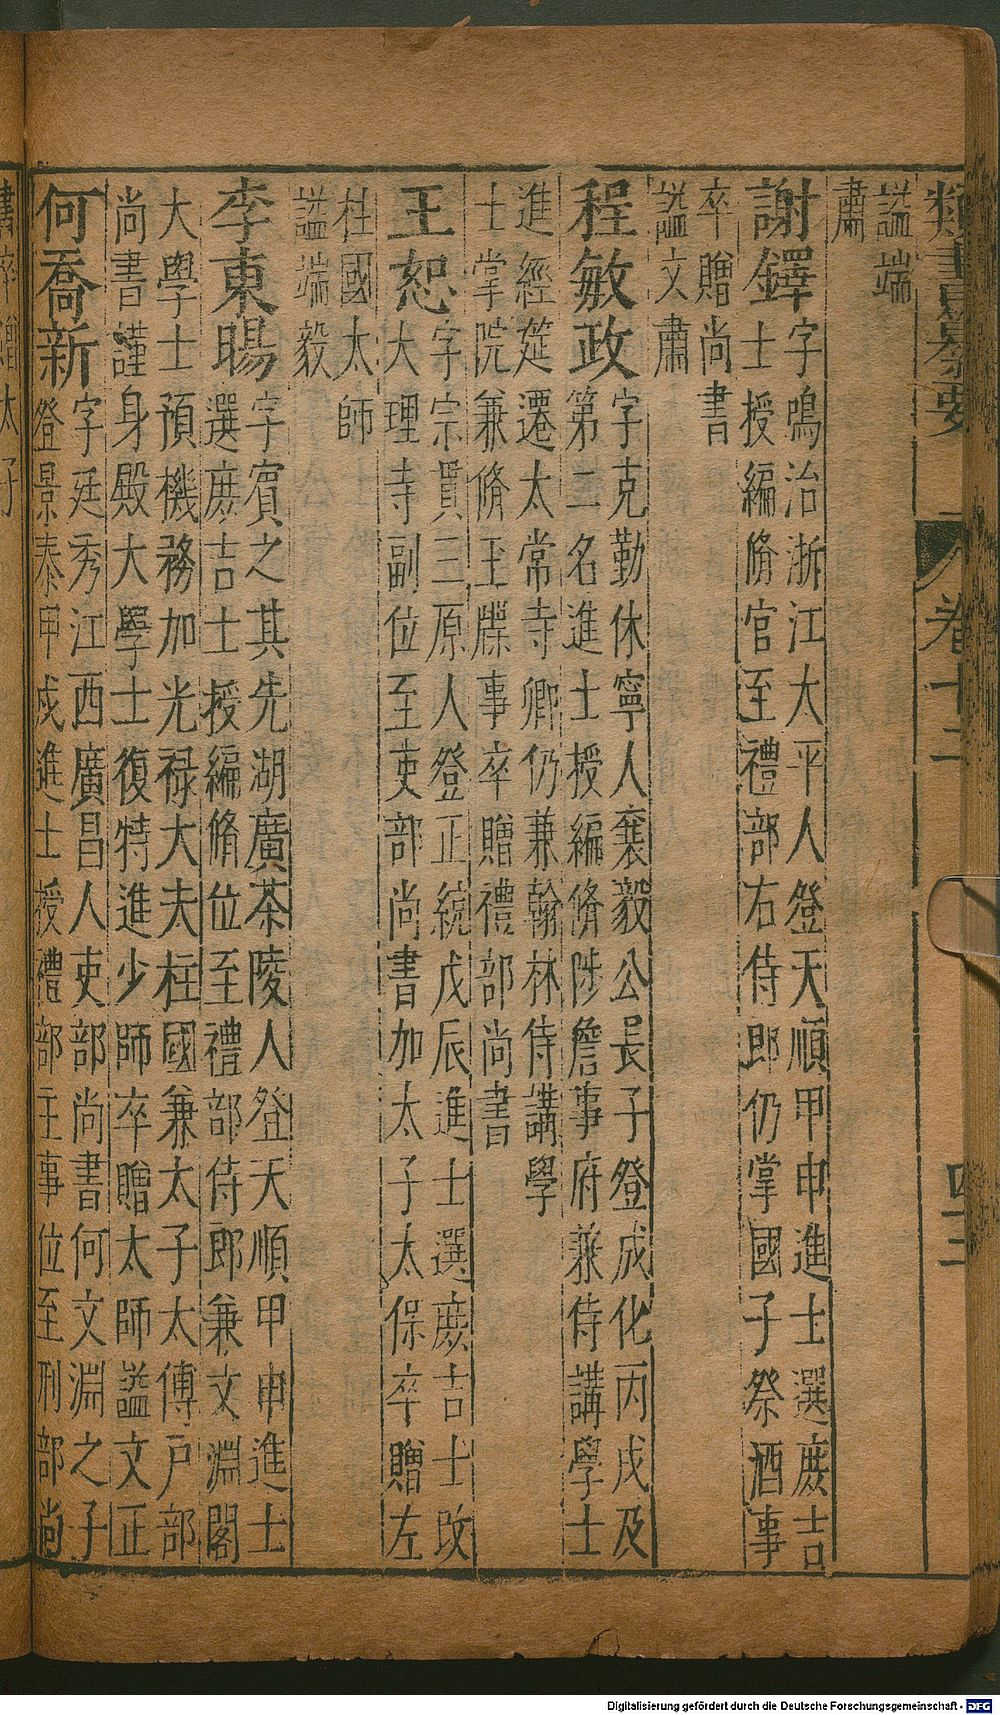 類書纂要
卷十二
諡端
肅
謝鐸字鳴治浙江太平人登天順甲申進士選庶吉
士授編脩官至禮部右侍郎仍掌國子祭酒事
卒贈尚書
諡文肅
程敏政字克勤休寧人襄毅公長子登成化丙戌及
第二名進士授編脩陟詹事府兼侍講學士
進經筵遷太常寺卿仍兼翰林侍講學
士掌院兼脩玉牒事卒贈禮部尚書
王恕字宗貫三原人登正統戊辰進士選庶吉士改
大理寺副位至吏部尚書加太子太保卒贈左
柱國太師
諡端毅
李東暘字賓之其先湖廣茶陵人登天順甲申進士
選庶吉士授編脩位至禮部侍郎兼文淵閣
大學士預機務加光祿大夫柱國兼太子太傅戶部
尚書謹身殿大學士復特進少師卒贈太師諡文正
何喬新字廷秀江西廣昌人吏部尚書何文淵之子
登景泰甲戌進士授禮部主事位至刑部尚
書卒贈太子
Digitalisierung gefördert durch die Deutsche Forschungsgemeinschaft - DFG